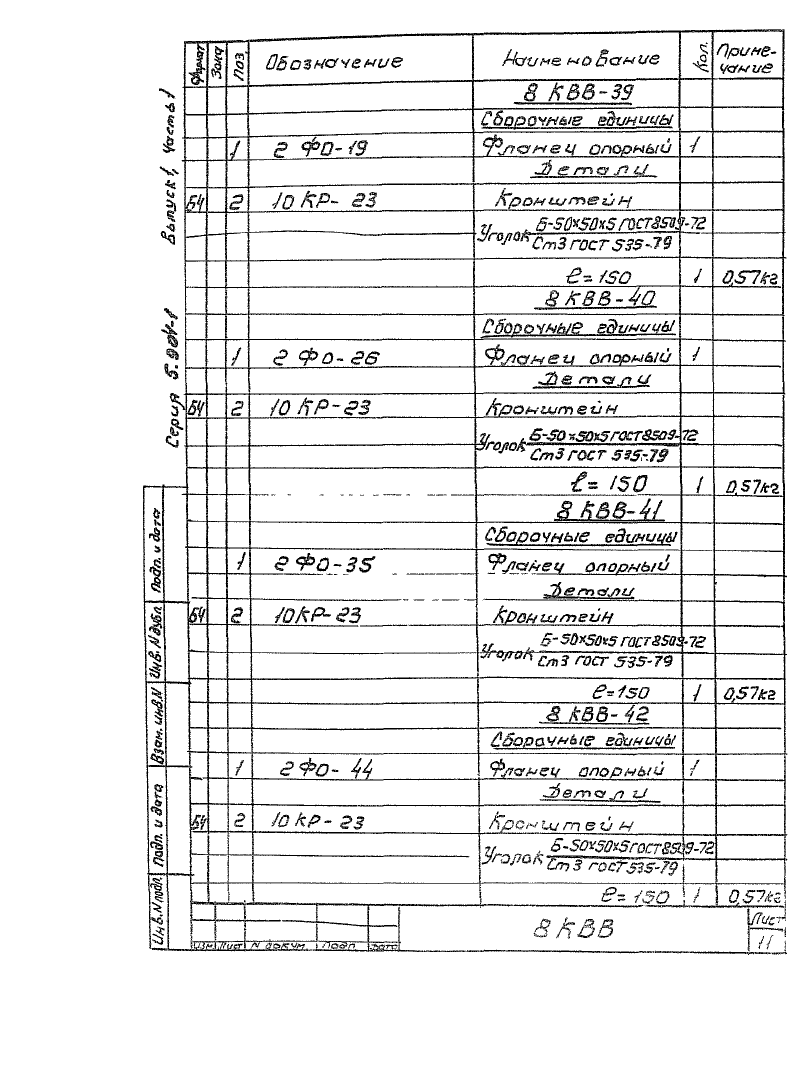 Серия 5.904-1 Выпуск 1, Часть 1
Формат Зона Поз Обозначение Наименование Кол. Приме-
чание
8 КВВ-39
Сборочные единицы
1 2 ФО-19 Фланец опорный 1
Детали
БЧ 2 10 КР-23 Кронштейн
Уголок Б-50х50х5 ГОСТ 8509-72
Ст3 ГОСТ 535-79
ℓ=150 1 0,57кг
8 КВВ-40
Сборочные единицы
1 2 ФО-26 Фланец опорный 1
Детали
БЧ 2 10 КР-23 Кронштейн
Уголок Б-50х50х5 ГОСТ 8509-72
Ст3 ГОСТ 535-79
ℓ=150 1 0,57кг
8 КВВ-41
Сборочные единицы
1 2 ФО-35 Фланец опорный
Детали
БЧ 2 10 КР-23 Кронштейн
Уголок Б-50х50х5 ГОСТ 8509-72
Ст3 ГОСТ 535-79
ℓ=150 1 0,57кг
8 КВВ-42
Сборочные единицы
1 2 ФО-44 Фланец опорный 1
Детали
БЧ 2 10 КР-23 Кронштейн
Уголок Б-50х50х5 ГОСТ 8509-72
Ст3 ГОСТ 535-79
ℓ=150 1 0,57кг
Подп. и дата
Инв. N дубл.
Взам. инв. N
Подп. и дата
Инв. N подл.
Изм. Лист N докум. Подп. Дата
8 КВВ
Лист
11